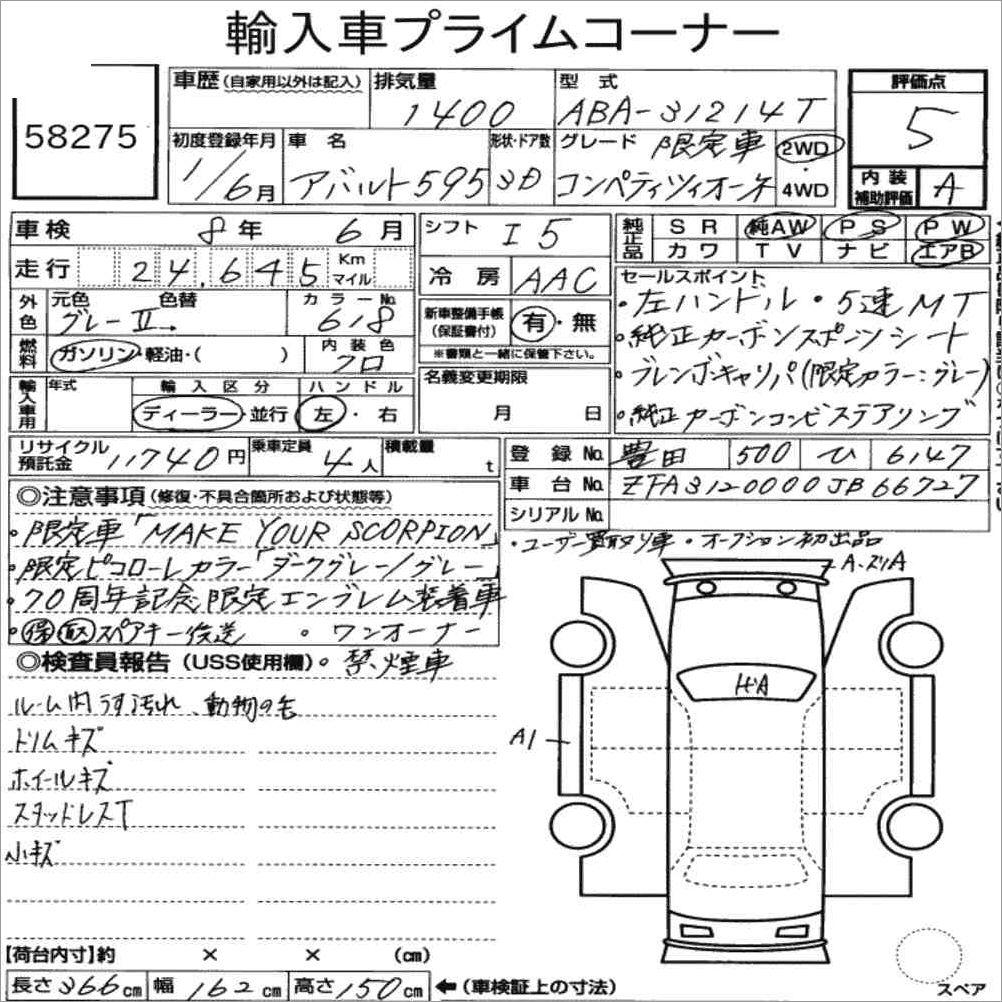 輸入車プライムコーナー
58275
車歴(自家用以外は記入)
排気量
1400
型式
ABA-31214T
評価点
5
初度登録年月
1/6月
車名
アバルト595
形状・ドア数
3D
グレード
限定車
コンペティツィオーネ
2WD
・
4WD
内装
補助評価
A
車検
8年 6月
シフト
I5
純正品
SR 純AW PS PW
カワ TV ナビ エアB
走行
24,645
Km
マイル
冷房
AAC
外色
元色
グレーII
色替
カラーNo.
618
新車整備手帳
(保証書付)
有・無
※書類と一緒に保管下さい。
セールスポイント
・左ハンドル・5速MT
・純正カーボンスポーツシート
・ブレンボキャリパ(限定カラー:グレー)
・純正カーボンコンビステアリング
燃料
ガソリン・軽油・( )
内装色
クロ
輸入車用
年式
輸入区分
ディーラー・並行
ハンドル
左・右
名義変更期限
月 日
リサイクル
預託金
11740円
乗車定員
4人
積載量
t
登録No.
豊田 500 ひ 6147
車台No.
ZFA3120000JB66727
シリアルNo.
◎注意事項(修復・不具合箇所および状態等)
・限定車「MAKE YOUR SCORPION」
・限定ピコローレカラー「ダークグレー/グレー」
・70周年記念限定エンブレム装着車
・保 取 スペアキー後送 ・ワンオーナー
・ユーザー買取り車・オークション初出品
◎検査員報告(USS使用欄)・禁煙車
ルーム内うす汚れ、動物の毛
トリムキズ
ホイールキズ
スタッドレスT
小キズ
A・ズリA
ヒA
A1
【荷台内寸】約 × × (cm)
長さ366cm 幅162cm 高さ150cm ←(車検証上の寸法)
スペア